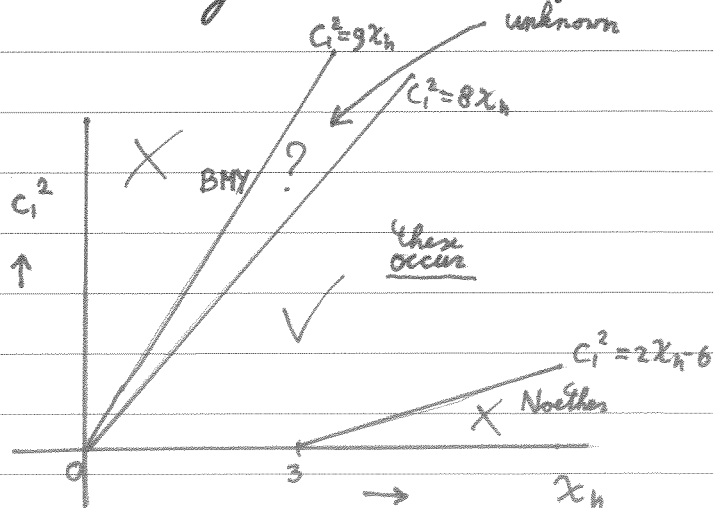 unknown
C₁²=9χₕ
C₁²=8χₕ
X
BMY
?
C₁²
↑
these
occur
✓
C₁²=2χₕ-6
X Noether
0
3
→
χₕ